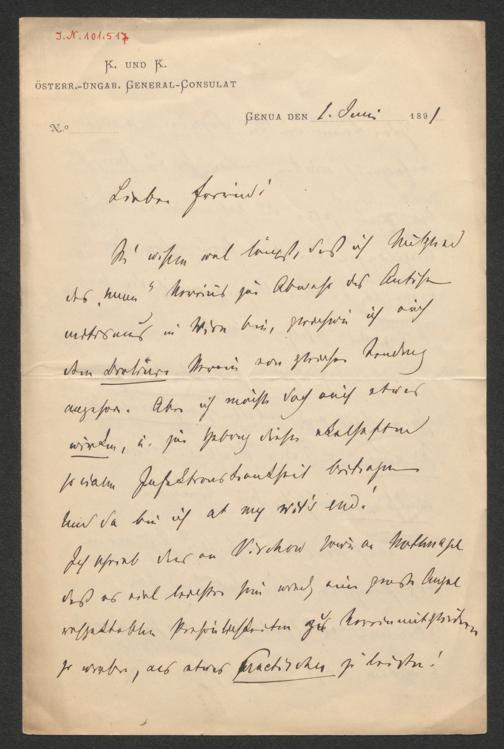 J.N. 101.517
K. UND K.
ÖSTERR.-UNGAR. GENERAL-CONSULAT
GENUA DEN 1. Juni 1891
N.o
Lieber Freund!
Sie wissen wol längst, daß ich Mitglied
des „neuen“ Vereins zur Abwehr des Antise-
mitismus in Wien bin, gleichwie ich auch
dem Berliner Verein von gleicher Tendenz
angehöre. Aber ich möchte doch auch etwas
wirken, u. zur Hebung dieser ekelhaften
socialen Infektionskrankheit beitragen
Und da bin ich at my wit's end!
Ich schrieb dies an Virchow sowie an Nothnagel
daß es viel leichter sein wird eine große Anzal
respektablen Persönlichkeiten zu Vereinsmitgliedern
zu werben, als etwas Practisches zu leisten!